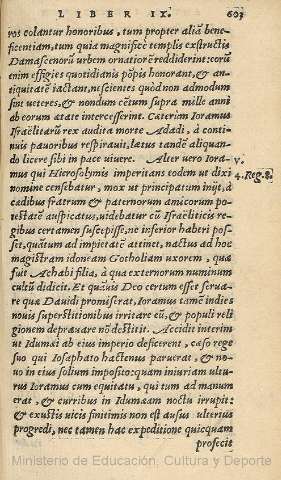 LIBER IX. 607
vos colantur honoribus, tum propter aliã bene-
ficentiam, tum quia magnificè templis exstructis
Damascenorũ urbem ornatiorẽ reddiderint: eorũ
enim effigies quotidianis põpis honorant, & an-
tiquitatẽ iactant, nescientes quòd non admodum
sint veteres, & nondum cẽtum supra mille anni
ab eorum ætate intercesserint. Cæterim Ioramus
Israëlitarũ rex audita morte Adadi, à conti-
nuis pauoribus respirauit, lætus tandẽ aliquan-
do licere sibi in pace viuere. Alter vero Iora-
mus qui Hierosolymis imperitans eodem ut dixi
nomine censebatur, mox ut principatum inijt, à
cædibus fratrum & paternorum amicorum po-
testatẽ auspicatus, videbatur cũ Israëliticis re-
gibus certamen suscepisse, ne inferior haberi pos-
set, quãtum ad impietatẽ attinet, nactus ad hoc
magistram idoneam Gotholiam uxorem, quæ
fuit Achabi filia, à qua externorum numinum
cultũ didicit. Et quãuis Deo certum esset serua-
re quæ Dauidi promiserat, Ioramus tamẽ indies
nouis superstitionibus irritare eũ, & populi reli
gionem deprauare nõ destitit. Accidit interim
ut Idumæi ab eius imperio deficerent, cæso rege
suo qui Iosaphato hactenus paruerat, & no-
uo in eius solium imposito: quam iniuriam ultu-
rus Ioramus cum equitatu, qui tum ad manum
erat, & curribus in Idumæam noctu irrupit:
& exustis vicis finitimis non est ausus ulterius
progredi, nec tamen hac expeditione quicquam
profecit
v.
4. Reg. 8.
Ministerio de Educación, Cultura y Deporte